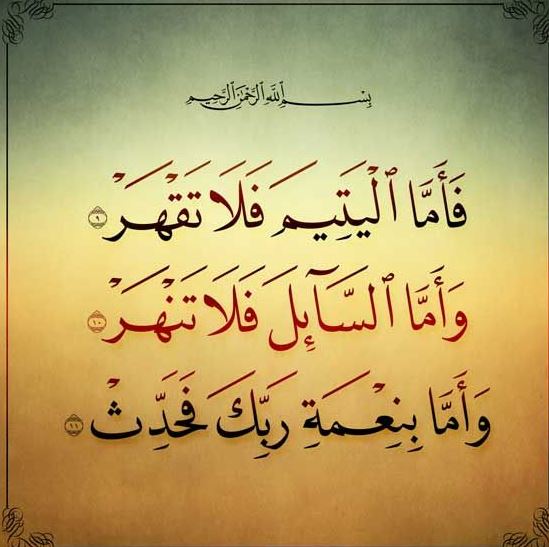 بِسْمِ ٱللَّهِ ٱلرَّحْمَٰنِ ٱلرَّحِيمِ
فَأَمَّا ٱلْيَتِيمَ فَلَا تَقْهَرْ ٩
وَأَمَّا ٱلسَّآئِلَ فَلَا تَنْهَرْ ١٠
وَأَمَّا بِنِعْمَةِ رَبِّكَ فَحَدِّثْ ١١